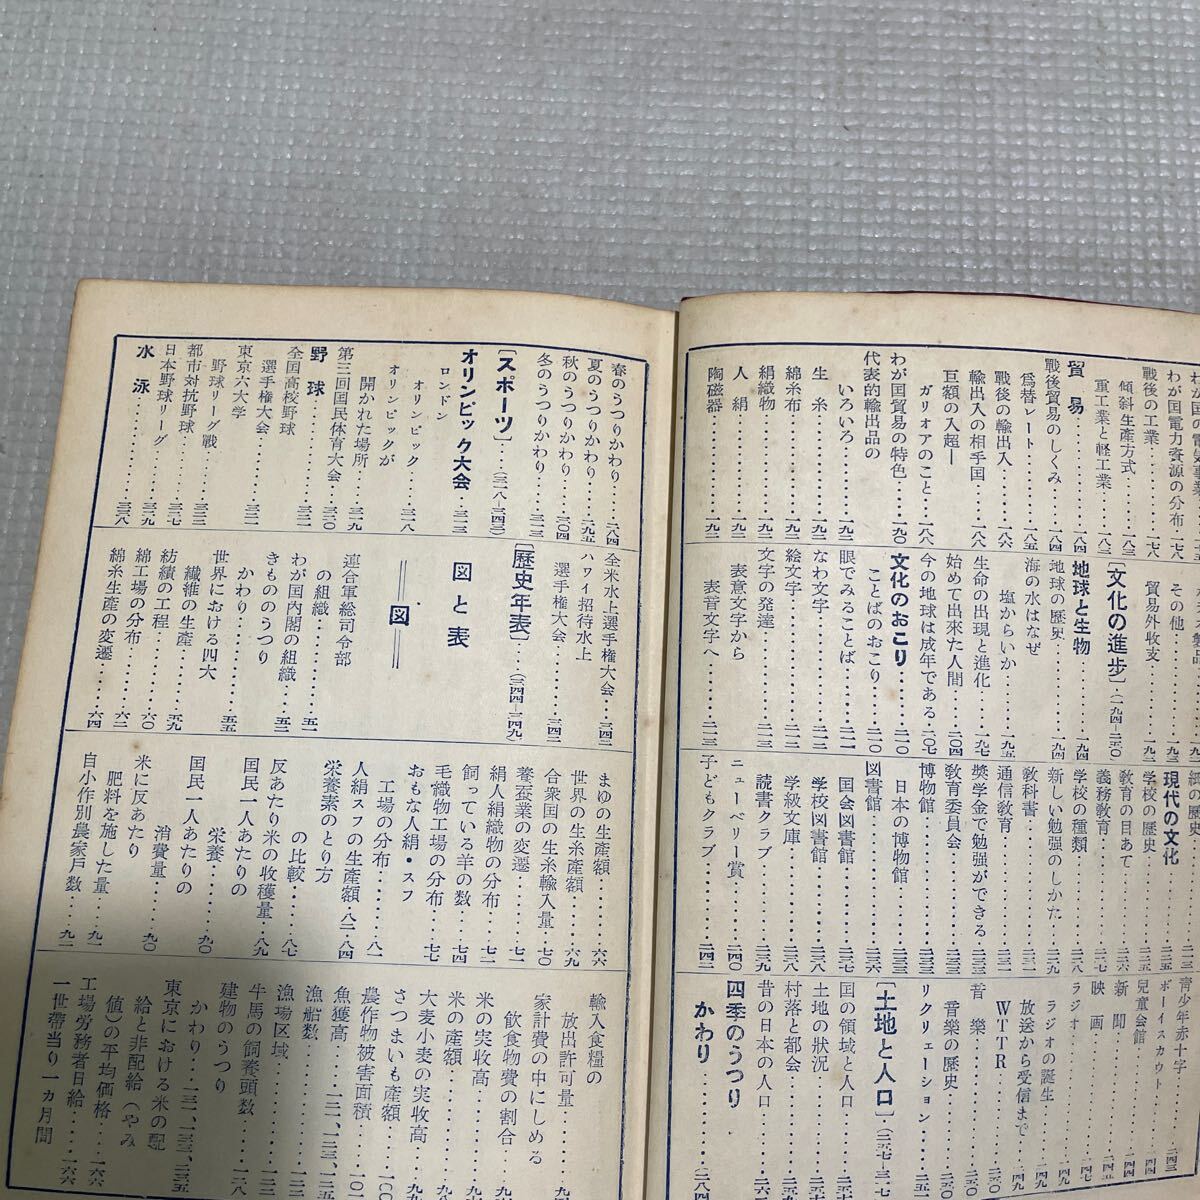 わが国電力資源の分布‥一七八
戦後の工業‥‥‥‥‥一七九
傾斜生産方式‥‥‥一八二
重工業と軽工業‥‥一八二
貿易‥‥‥‥‥‥‥一八四
戦後貿易のしくみ‥‥一八四
為替レート‥‥‥‥‥一八五
戦後の輸出入‥‥‥‥一八六
輸出入の相手国‥‥‥一八六
巨額の入超―
ガリオアのこと‥‥一八八
わが国貿易の特色‥‥一九〇
代表的輸出品の
いろいろ‥‥‥‥‥一九二
生糸‥‥‥‥‥‥‥一九二
綿糸布‥‥‥‥‥‥一九二
絹織物‥‥‥‥‥‥一九二
人絹‥‥‥‥‥‥‥一九二
陶磁器‥‥‥‥‥‥一九二
その他‥‥‥‥‥‥一九二
貿易外収支‥‥‥‥一九三
〔文化の進歩〕‥(一九四―二五〇)
地球と生物‥‥‥‥一九四
地球の歴史‥‥‥‥‥一九四
海の水はなぜ
塩からいか‥‥‥‥一九五
生命の出現と進化‥‥一九七
始めて出来た人間‥‥二〇四
今の地球は成年である‥二〇七
文化のおこり‥‥‥二一〇
ことばのおこり‥‥二一〇
眼でみることば‥‥‥二一一
なわ文字‥‥‥‥‥二一二
絵文字‥‥‥‥‥‥二一二
文字の発達‥‥‥‥‥二一三
表意文字から
表音文字へ‥‥‥二一三
紙の歴史‥‥‥‥‥二一三
現代の文化‥‥‥‥二二五
学校の歴史‥‥‥‥‥二二五
教育の目あて‥‥‥‥二二六
義務教育‥‥‥‥‥‥二二七
学校の種類‥‥‥‥‥二二八
新しい勉強のしかた‥二二九
教科書‥‥‥‥‥‥‥二三一
通信教育‥‥‥‥‥‥二三二
奨学金で勉強ができる‥二三三
教育委員会‥‥‥‥‥二三三
博物館‥‥‥‥‥‥‥二三三
日本の博物館‥‥‥二三三
図書館‥‥‥‥‥‥‥二三六
国会図書館‥‥‥‥二三七
学校図書館‥‥‥‥二三八
学級文庫‥‥‥‥‥二三八
読書クラブ‥‥‥‥二三九
ニューベリー賞‥‥‥二四〇
子どもクラブ‥‥‥‥二四二
青少年赤十字‥‥‥‥二四三
ボーイスカウト
児童会館
新聞‥‥‥‥‥‥‥二四四
映画
ラジオ‥‥‥‥‥‥‥二四七
ラジオの誕生
放送から受信まで‥二四九
WTR‥‥‥‥‥‥二五〇
音楽‥‥‥‥‥‥‥二五〇
音楽の歴史‥‥‥‥二五〇
リクリェーション‥‥二五五
〔土地と人口〕(二五七―三一七)
国の領域と人口‥‥‥二五七
土地の状況‥‥‥‥‥二五八
村落と都会‥‥‥‥‥二五九
昔の日本の人口‥‥‥二六一
四季のうつり
かわり‥‥‥‥‥二八四
春のうつりかわり‥‥二八四
夏のうつりかわり‥‥二九五
秋のうつりかわり‥‥三〇四
冬のうつりかわり‥‥三一三
〔スポーツ〕‥(三一八―三四三)
オリンピック大会‥三一八
ロンドン
オリンピック‥‥三一八
オリンピックが
開かれた場所‥‥三一九
第三回国民体育大会‥三二〇
野球‥‥‥‥‥‥‥三二一
全国高校野球
選手権大会‥‥‥
東京六大学
野球リーグ戦
都市対抗野球‥‥‥三二七
日本野球リーグ‥‥三二九
水泳‥‥‥‥‥‥‥三三八
全米水上選手権大会‥三四二
ハワイ招待水上
選手権大会‥‥‥三四二
〔歴史年表〕‥(三四四―三四九)
図と表
図
連合軍総司令部
の組織‥‥‥‥‥五一
わが国内閣の組織‥‥五二
きもののうつり
かわり‥‥‥‥‥五五
世界における四大
繊維の生産‥‥‥五九
紡績の工程‥‥‥‥六〇
綿工場の分布‥‥‥六二
綿糸生産の変遷‥‥六四
まゆの生産額‥‥‥六六
世界の生糸産額‥‥六九
合衆国の生糸輸入量‥七〇
養蚕業の変遷‥‥‥七一
絹人絹織物の分布‥‥七二
飼っている羊の数‥‥七四
毛織物工場の分布‥‥七七
おもな人絹・スフ
工場の分布‥‥‥八一
人絹スフの生産額‥八二・八四
栄養素のとり方
の比較‥‥‥‥‥八七
反あたり米の収穫量‥八九
国民一人あたりの
栄養‥‥‥‥‥‥九〇
国民一人あたりの
消費量‥‥‥‥‥九〇
米に反あたり
肥料を施した量‥‥九一
自小作別農家戸数‥‥九二
輸入食糧の
放出許可量‥‥‥九四
家計費の中にしめる
飲食物費の割合
米の実収高
米の産額
大麦小麦の実収高
さつまいも産額
農作物被害面積‥一〇一
魚獲高
漁船数
漁場区域
牛馬の飼養頭数
建物のうつり
かわり
東京における米の配
給と非配給(やみ
値)の平均価格‥一六六
工場労務者日給‥一六六
一世帯当り一ヵ月間